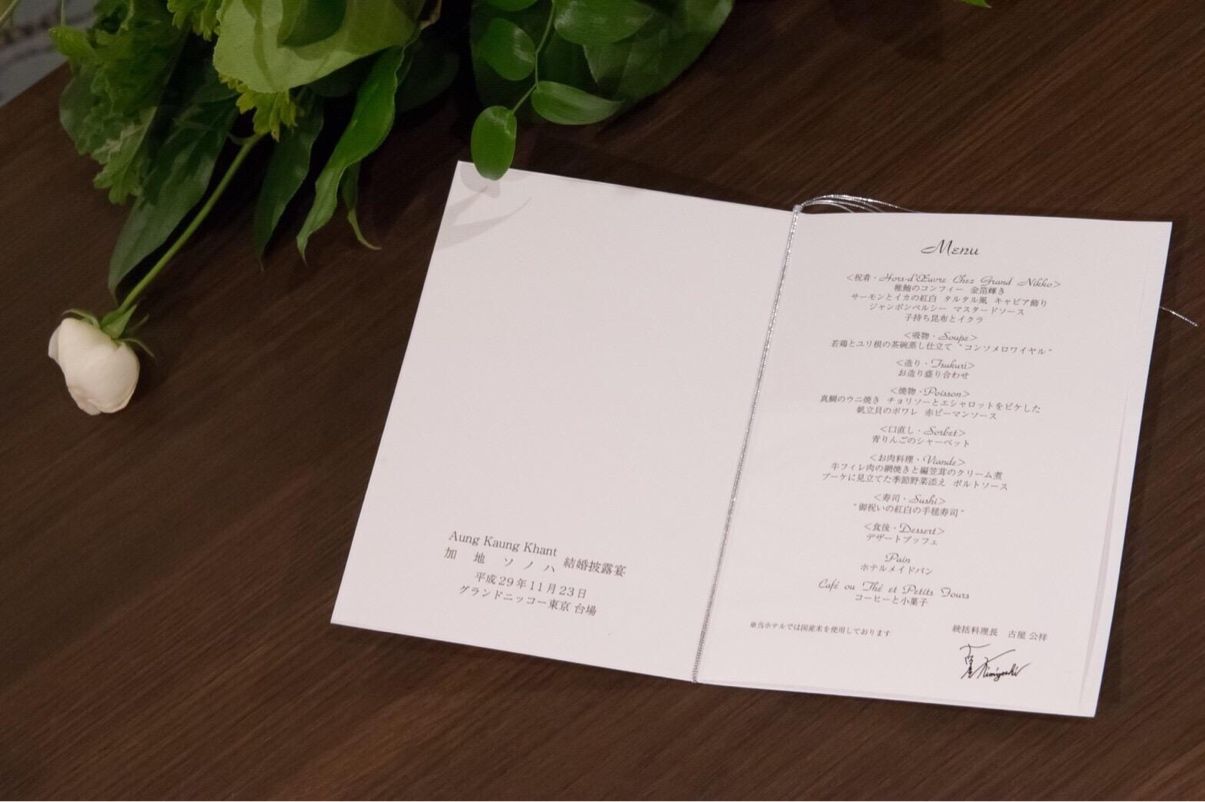 Aung Kaung Khant
加地 ソノハ 結婚披露宴
平成29年11月23日
グランドニッコー東京 台場
Menu
<祝肴・Hors-d'Œuvre Chez Grand Nikko>
稚鮑のコンフィー 金箔輝き
サーモンとイカの紅白 タルタル風 キャビア飾り
ジャンボンペルシー マスタードソース
子持ち昆布とイクラ
<吸物・Soupe>
若鶏とユリ根の茶碗蒸し仕立て “コンソメロワイヤル”
<造り・Tsukuri>
お造り盛り合わせ
<焼物・Poisson>
真鯛のウニ焼き チョリソーとエシャロットをピケした
帆立貝のポワレ 赤ピーマンソース
<口直し・Sorbet>
青りんごのシャーベット
<お肉料理・Viande>
牛フィレ肉の網焼きと編笠茸のクリーム煮
ブーケに見立てた季節野菜添え ポルトソース
<寿司・Sushi>
“御祝いの紅白の手毬寿司”
<食後・Dessert>
デザートブッフェ
Pain
ホテルメイドパン
Café ou Thé et Petits Fours
コーヒーと小菓子
※当ホテルでは国産米を使用しております
統括料理長 古屋 公祥
Kimiyoshi